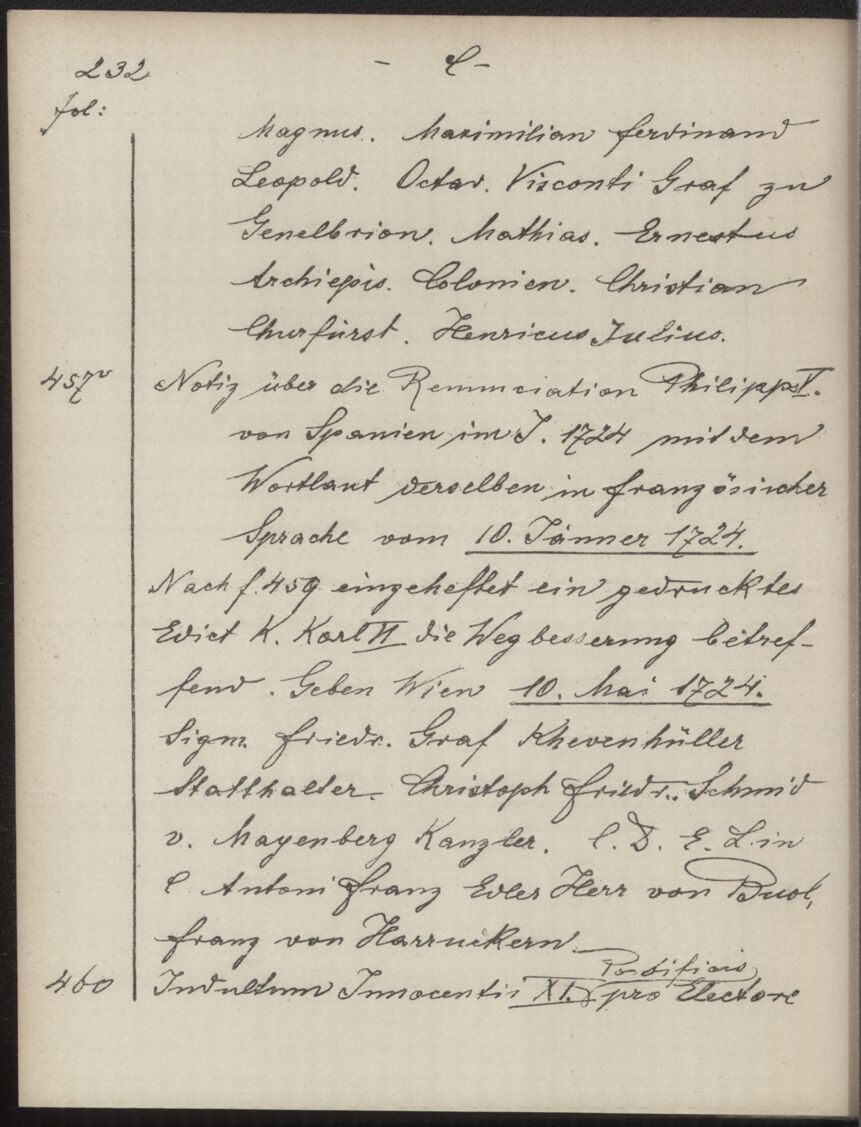 232
- C -
fol:
Magnus. Maximilian Ferdinand
Leopold. Octav. Visconti Graf zu
Genelbrion. Mathias. Ernestus
Archiepis. Colonien. Christian
Churfürst. Henricus Julius.
457v Notiz über die Renunciation Philipps V.
von Spanien im J. 1724 mit dem
Wortlaut derselben in französischer
Sprache vom 10. Jänner 1724.
Nach f. 459 eingeheftet ein gedrucktes
Edict K. Karl VI die Wegbesserung betref-
fend. Geben Wien 10. Mai 1724.
Sigm. Friedr. Graf Khevenhüller
Statthalter. Christoph Friedr. Schmid
v. Mayenberg Kanzler. C. D. E. L. in
C. Antoni Franz Edler Herr von Buol,
Franz von Harruckern.
Pontificis
460 Indultum Innocentii XI. pro Electore